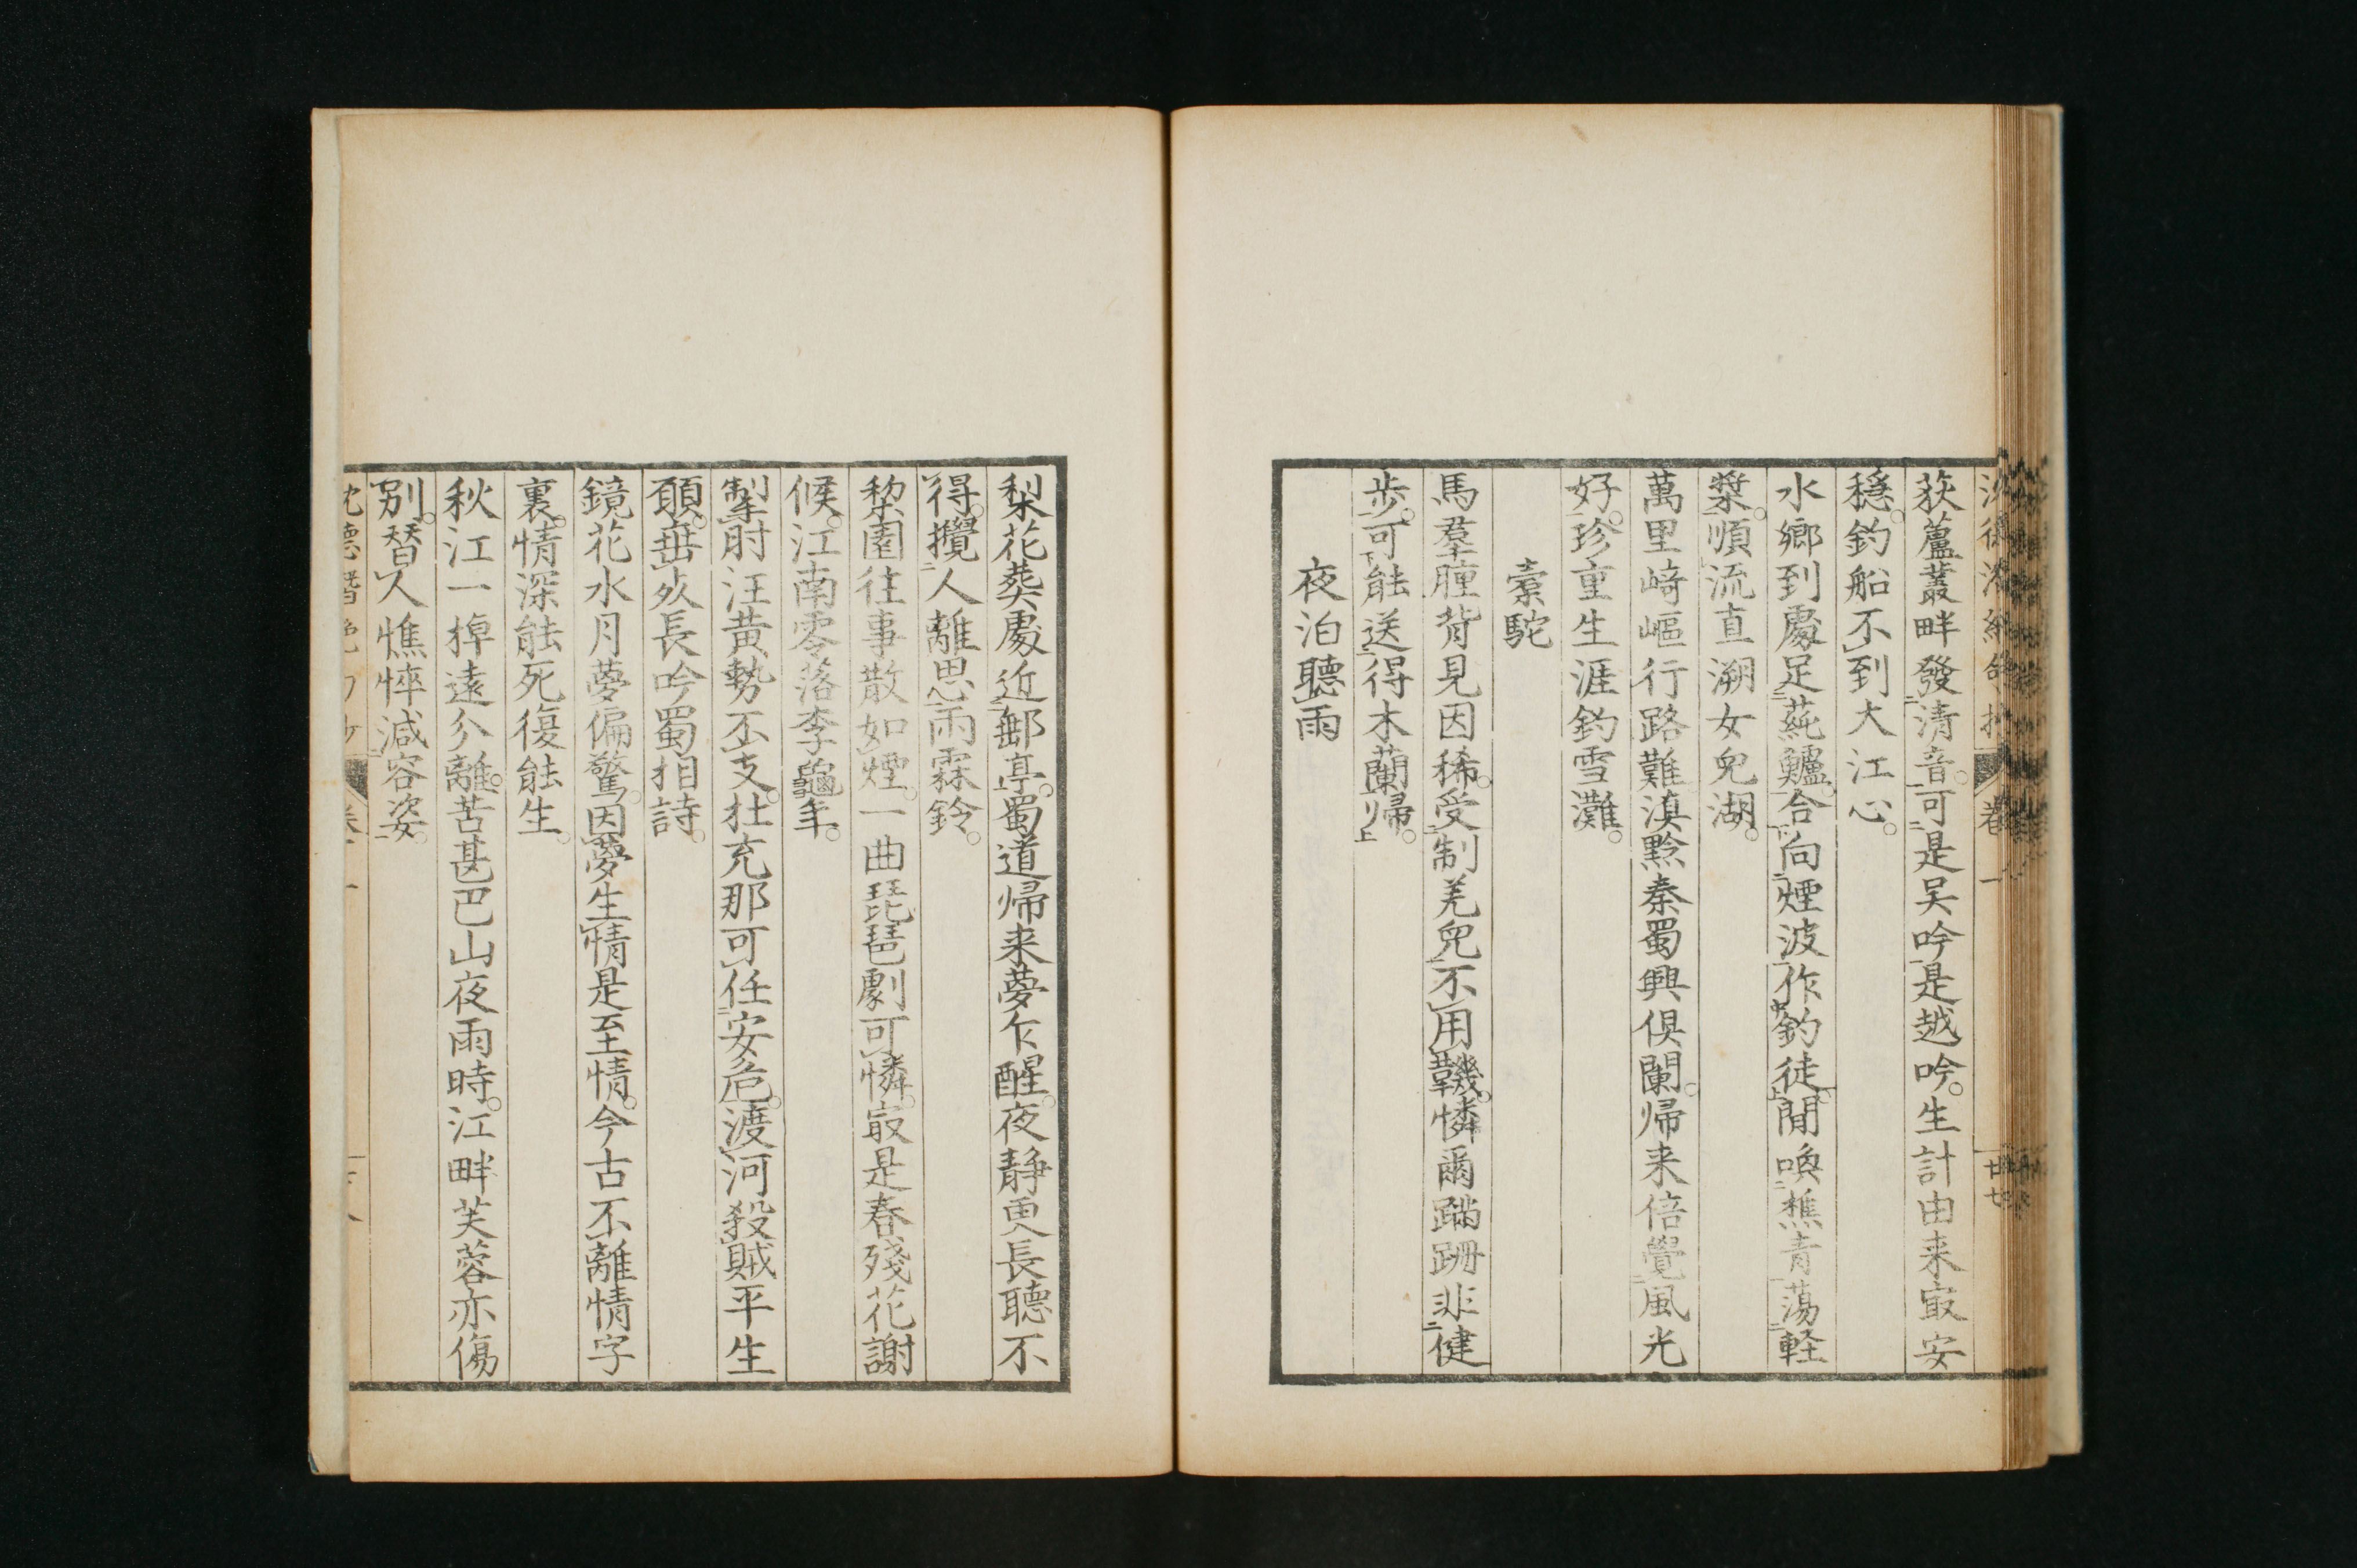 荻蘆叢畔發清音可是吴吟是越吟生計由来㝡安
穏釣船不到大江心
水鄉到處足蓴鱸合向煙波作釣徒閒喚樵青蕩軽
槳順流直溯女兒湖
萬里﨑嶇行路難滇黔秦蜀興俱闌帰来倍覺風光
好珍重生涯釣雪灘
橐駝
馬羣腫背見因稀受制羌兒不用鞿憐爾蹣跚非健
歩可能送得木蘭帰
夜泊聽雨
卷一
廿七
梨花葬處近郵亭蜀道帰来夢乍醒夜靜更長聽不
得攪人離思雨霖鈴
棃園往事散如煙一曲琵琶劇可憐㝡是春殘花謝
候江南零落李龜年
掣肘汪黄勢不支壮充那可任安危渡河殺賊平生
願垂死長吟蜀相詩
鏡花水月夢偏驚因夢生情是至情今古不離情字
裏情深能死復能生
秋江一棹遠分離苦甚巴山夜雨時江畔芙蓉亦傷
別替人憔悴減容姿